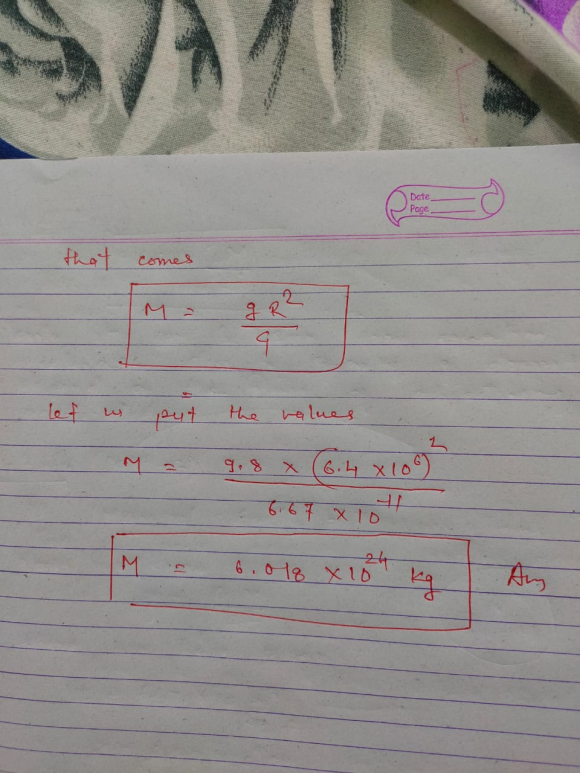 Date
Page
that comes
M = g R²
G
let us put the values
M = 9.8 × (6.4 × 10⁶)²
6.67 × 10⁻¹¹
M = 6.018 × 10²⁴ kg Ans